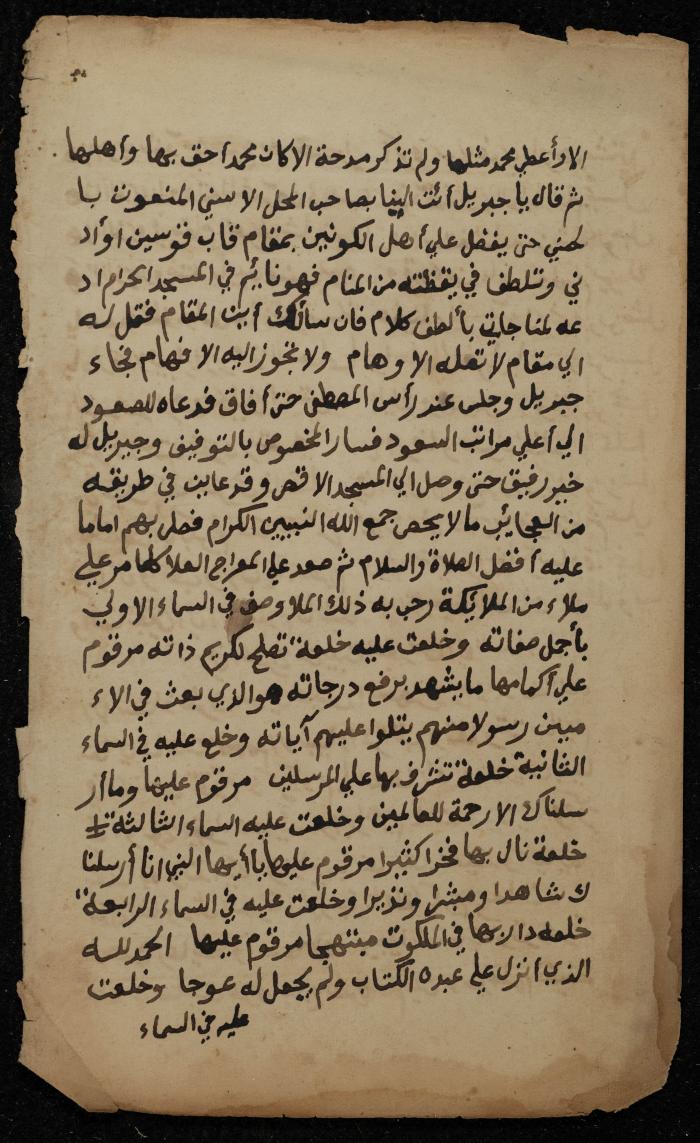 الا وأعطي محمد مثلها ولم تذكر مدحة الا كان محمد أحق بها وأهلها
ثم قال يا جبريل أئت الينا بصاحب المحل الاسني المنعوت با
لحسني حتى يفضل علي أهل الكونين بمقام قاب قوسين او أد
ني وتلطف في يقظته من المنام فهو نايم في المسجد الحرام اد
عه لمناجاتي بألطف كلام فان سألك أين المقام فقل له
الي مقام لا تعله الاوهام ولا تجوز اليه الافهام فجاء
جبريل وجلس عند رأس المصطفى حتى أفاق فدعاه للصعود
الي أعلي مراتب السعود فسار المخصوص بالتوفيق وجبريل له
خير رفيق حتى وصل الي المسجد الاقصى وقد عاين في طريقه
من العجائب ما لا يحصى جمع الله النبيين الكرام فصلى بهم اماما
عليه أفضل الصلاة والسلام ثم صعد علي المعراج العلا كلما مر علي
ملاء من الملائكة رحب به ذلك الملا وصف في السماء الاولي
بأجمل صفاته وخلعت عليه خلعة تصلح لكريم ذاته مرقوم
علي أكمامها ما يشهد برفع درجاته هو الذي بعث في الا
ميين رسولا منهم يتلوا عليهم آياته وخلع عليه في السماء
الثانية خلعة تشرف بها علي المرسلين مرقوم عليها وما أر
سلناك الا رحمة للعالمين وخلعت عليه السماء الثالثة
خلعة نال بها فخرا كثيرا مرقوم عليها يا أيها النبي انا أرسلنا
ك شاهدا ومبشرا ونذيرا وخلعت عليه في السماء الرابعة
خلعه دار بها في الملكوت مبتهجا مرقوم عليها الحمد لله
الذي انزل علي عبده الكتاب ولم يجعل له عوجا وخلعت
عليه في السماء